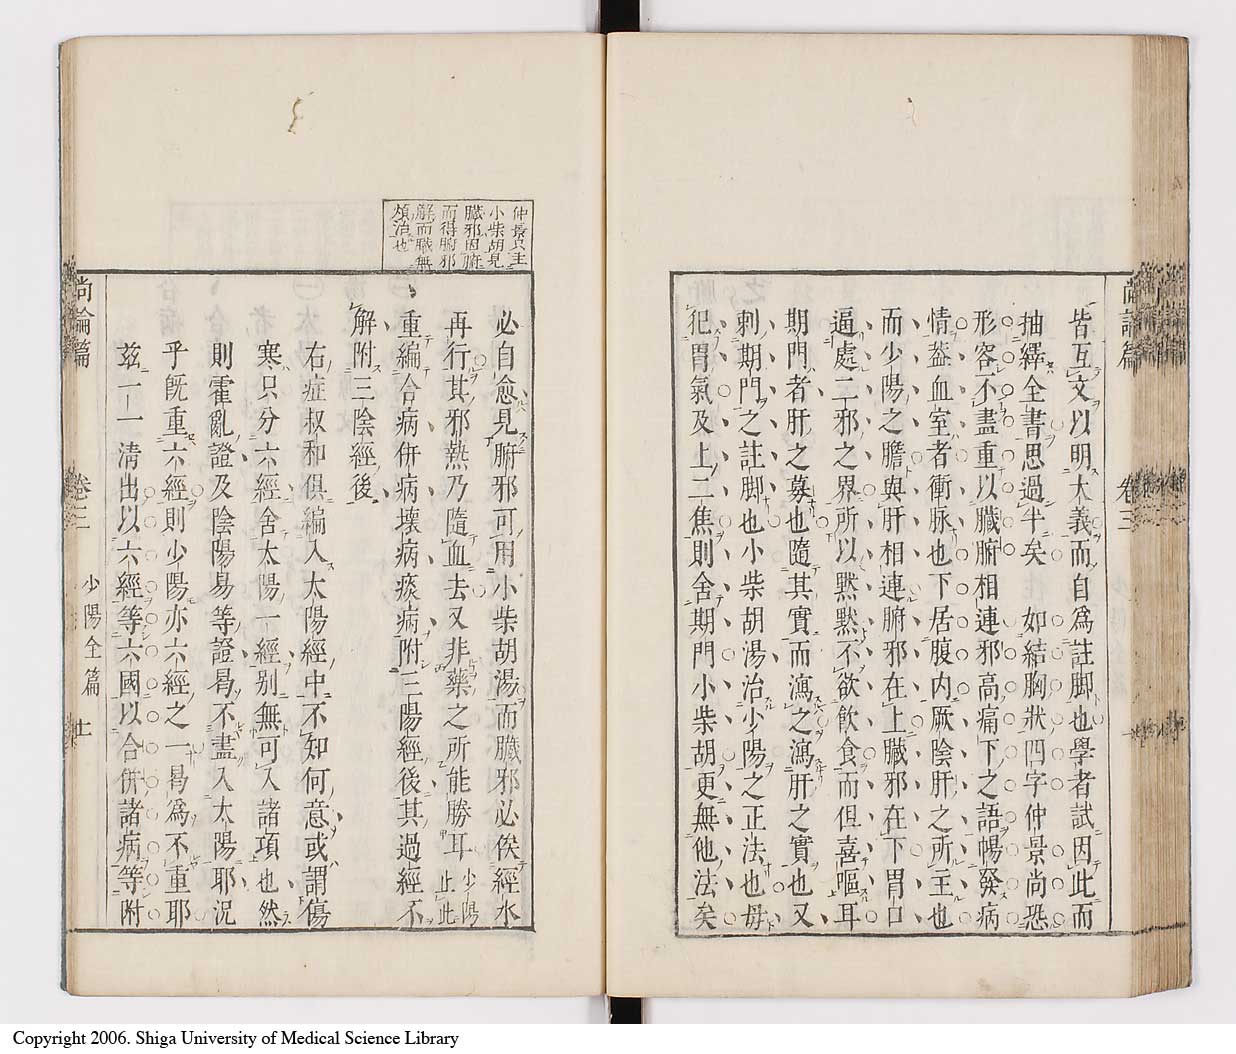 尚論篇 卷三
皆互文以明大義而自爲註脚也學者試因此而
抽繹全書思過半矣 如結胸狀四字仲景尚恐
形容不盡重以臟腑相連邪高痛下之語暢發病
情葢血室者衝脉也下居腹内厥陰肝之所主也
而少陽之膽與肝相連腑邪在上臟邪在下胃口
逼處二邪之界所以默默不欲飲食而但喜嘔耳
期門者肝之募也隨其實而瀉之瀉肝之實也又
刺期門之註脚也小柴胡湯治少陽之正法也毋
犯胃氣及上二焦則舍期門小柴胡更無他法矣
仲景只主
小柴胡見
臟邪因腑
而得腑邪
解而臟無
煩治也
必自愈見腑邪可用小柴胡湯而臟邪必俟經水
再行其邪熱乃隨血去又非藥之所能勝耳 少陽止此
重編合病併病壞病痰病附三陽經後其過經不
解附三陰經後
右症叔和俱編入太陽經中不知何意或謂傷
寒只分六經舍太陽一經别無可入諸項也然
則霍亂證及陰陽易等證曷不盡入太陽耶況
乎既重六經則少陽亦六經之一曷爲不重耶
兹一一清出以六經等六國以合併諸病等附
尚論篇 卷三 少陽全篇